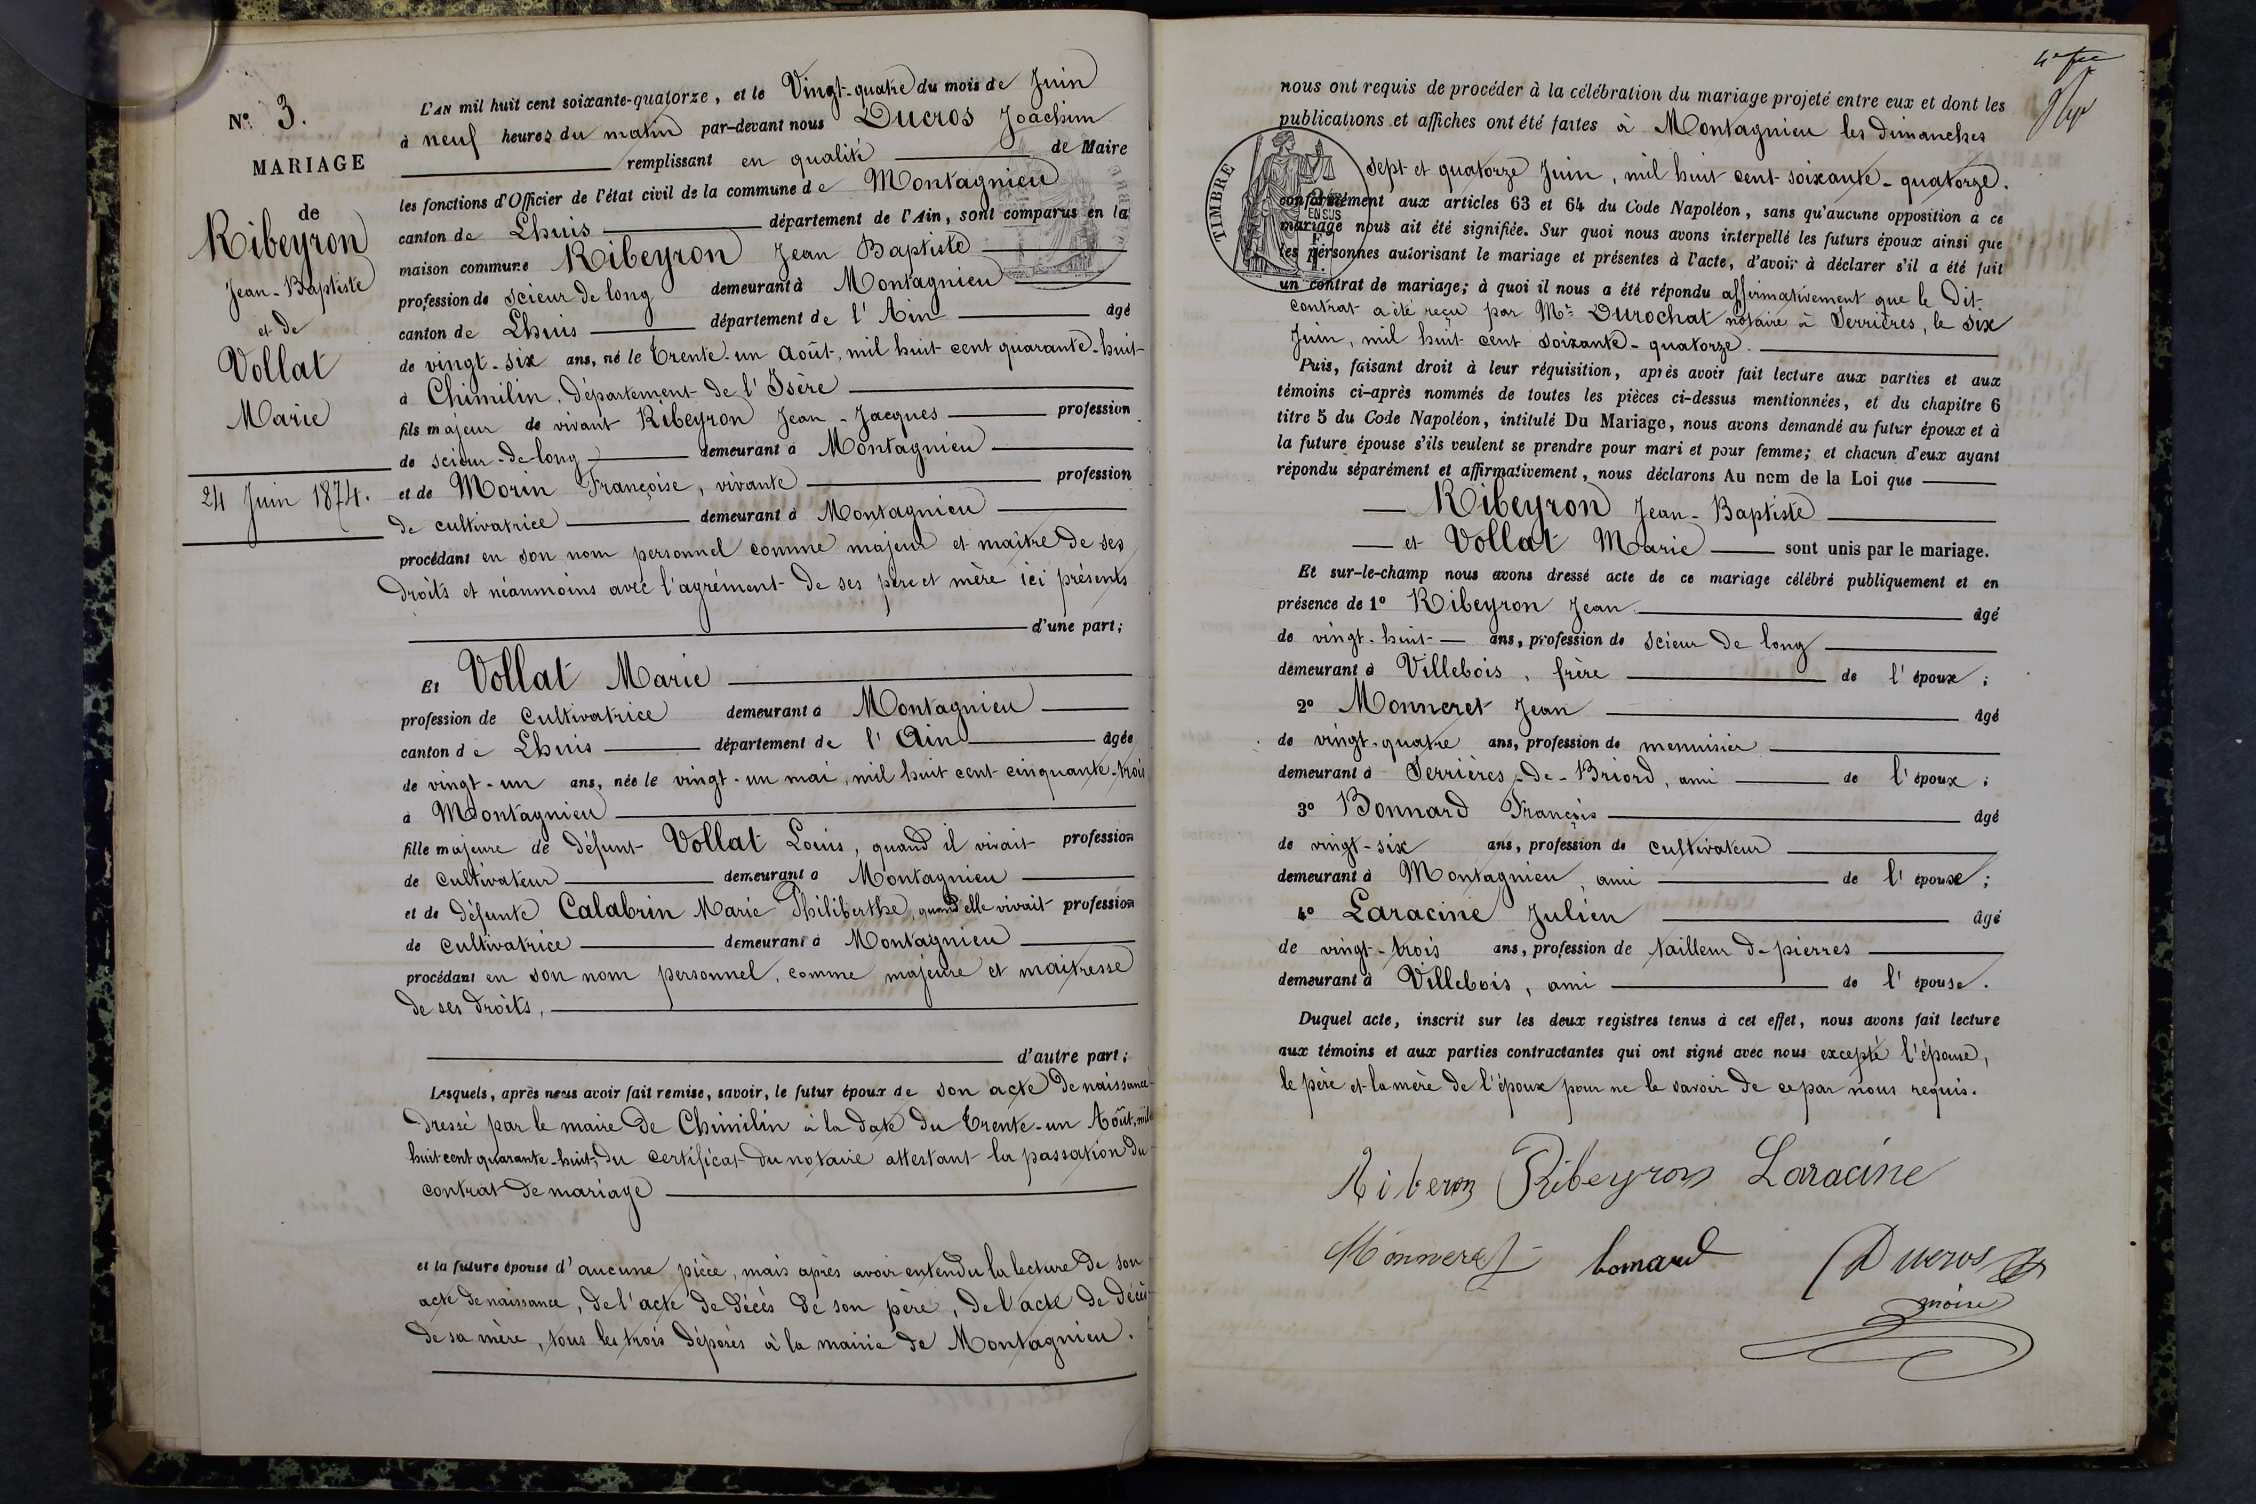 N° 3.
MARIAGE
de
Ribeyron
Jean-Baptiste
et de
Vollat
Marie
24 Juin 1874.
L'AN mil huit cent soixante-quatorze, et le Vingt-quatre du mois de Juin
à neuf heures du matin par-devant nous Ducros Joachim
remplissant en qualité de Maire
les fonctions d'Officier de l'état civil de la commune de Montagnieu
canton de Lhuis département de l'Ain, sont comparus en la
maison commune Ribeyron Jean Baptiste
profession de scieur de long demeurant à Montagnieu
canton de Lhuis département de l'Ain âgé
de vingt-six ans, né le trente-un Août, mil huit cent quarante-huit
à Chimilin, département de l'Isère
fils majeur de vivant Ribeyron Jean-Jacques profession
de scieur-de-long demeurant à Montagnieu
et de Morin Françoise, vivante profession
de cultivatrice demeurant à Montagnieu
procédant en son nom personnel comme majeur et maître de ses
droits et néanmoins avec l'agrément de ses père et mère ici présents
d'une part;
Et Vollat Marie
profession de cultivatrice demeurant à Montagnieu
canton de Lhuis département de l'Ain âgée
de vingt-un ans, née le vingt-un mai, mil huit cent cinquante-trois
à Montagnieu
fille majeure de défunt Vollat Louis, quand il vivait profession
de cultivateur demeurant à Montagnieu
et de défunte Calabrin Marie Philiberthe, quand elle vivait profession
de cultivatrice demeurant à Montagnieu
procédant en son nom personnel, comme majeure et maitresse
de ses droits,
d'autre part;
Lesquels, après nous avoir fait remise, savoir, le futur époux de son acte de naissance
dressé par le maire de Chimilin à la date du trente-un Août, mil
huit cent quarante-huit, du certificat du notaire attestant la passation du
contrat de mariage
et la future épouse d'aucune pièce, mais après avoir entendu la lecture de son
acte de naissance, de l'acte de décès de son père, de l'acte de décès
de sa mère, tous les trois déposés à la mairie de Montagnieu.
nous ont requis de procéder à la célébration du mariage projeté entre eux et dont les
publications et affiches ont été faites à Montagnieu les dimanches
TIMBRE
sept et quatorze Juin, mil huit cent soixante-quatorze.
conformément aux articles 63 et 64 du Code Napoléon, sans qu'aucune opposition à ce
EN SUS
mariage nous ait été signifiée. Sur quoi nous avons interpellé les futurs époux ainsi que
les personnes autorisant le mariage et présentes à l'acte, d'avoir à déclarer s'il a été fait
un contrat de mariage; à quoi il nous a été répondu affirmativement que le dit
contrat a été reçu par Me Durochat notaire à Serrières, le six
Juin, mil huit cent soixante-quatorze.
Puis, faisant droit à leur réquisition, après avoir fait lecture aux parties et aux
témoins ci-après nommés de toutes les pièces ci-dessus mentionnées, et du chapitre 6
titre 5 du Code Napoléon, intitulé Du Mariage, nous avons demandé au futur époux et à
la future épouse s'ils veulent se prendre pour mari et pour femme; et chacun d'eux ayant
répondu séparément et affirmativement, nous déclarons Au nom de la Loi que
Ribeyron Jean-Baptiste
et Vollat Marie sont unis par le mariage.
Et sur-le-champ nous avons dressé acte de ce mariage célébré publiquement et en
présence de 1° Ribeyron Jean âgé
de vingt-huit ans, profession de scieur de long
demeurant à Villebois, frère de l'époux;
2° Monneret Jean âgé
de vingt-quatre ans, profession de menuisier
demeurant à Serrières-de-Briord, ami de l'époux;
3° Bonnard François âgé
de vingt-six ans, profession de cultivateur
demeurant à Montagnieu, ami de l'épouse;
4° Laracine Julien âgé
de vingt-trois ans, profession de tailleur d-pierres
demeurant à Villebois, ami de l'épouse.
Duquel acte, inscrit sur les deux registres tenus à cet effet, nous avons fait lecture
aux témoins et aux parties contractantes qui ont signé avec nous excepté l'épouse,
le père et la mère de l'époux pour ne le savoir de ce par nous requis.
Riberon Ribeyron Laracine
Monneret bonard Ducros
maire